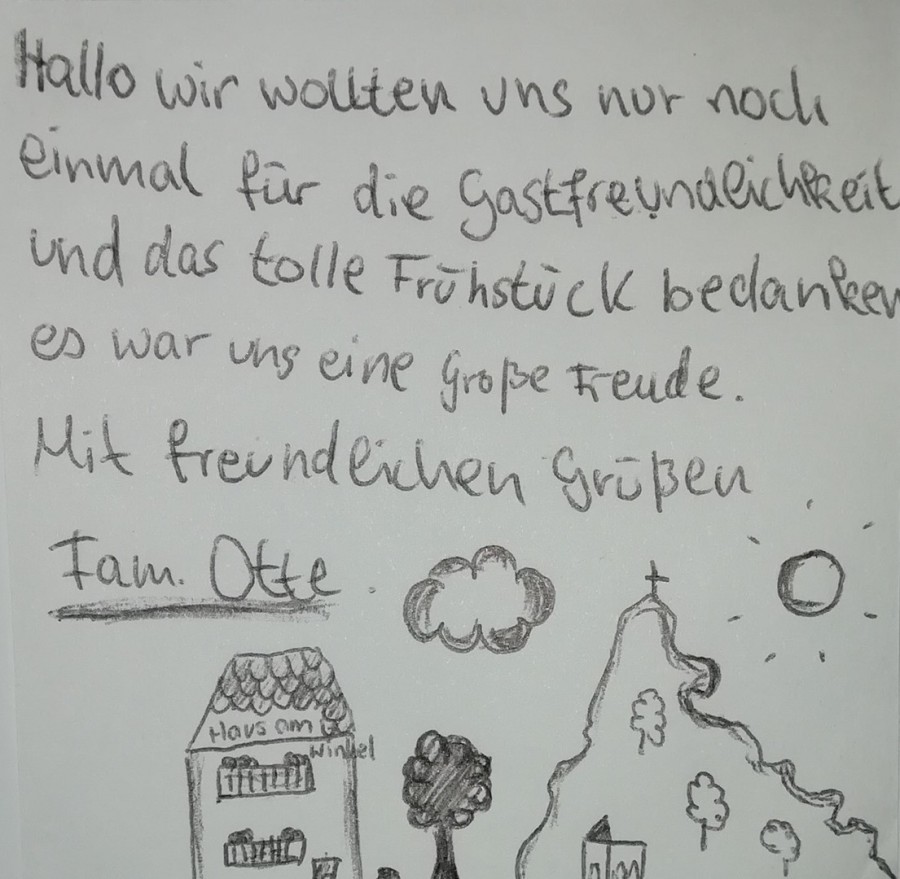 Hallo wir wollten uns nur noch
einmal für die Gastfreundlichkeit
und das tolle Frühstück bedanken
es war uns eine Große Freude.
Mit freundlichen Grüßen
Fam. Otte.
Haus am
Winkel